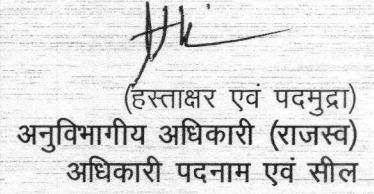 (हस्ताक्षर एवं पदमुद्रा)
अनुविभागीय अधिकारी (राजस्व)
अधिकारी पदनाम एवं सील